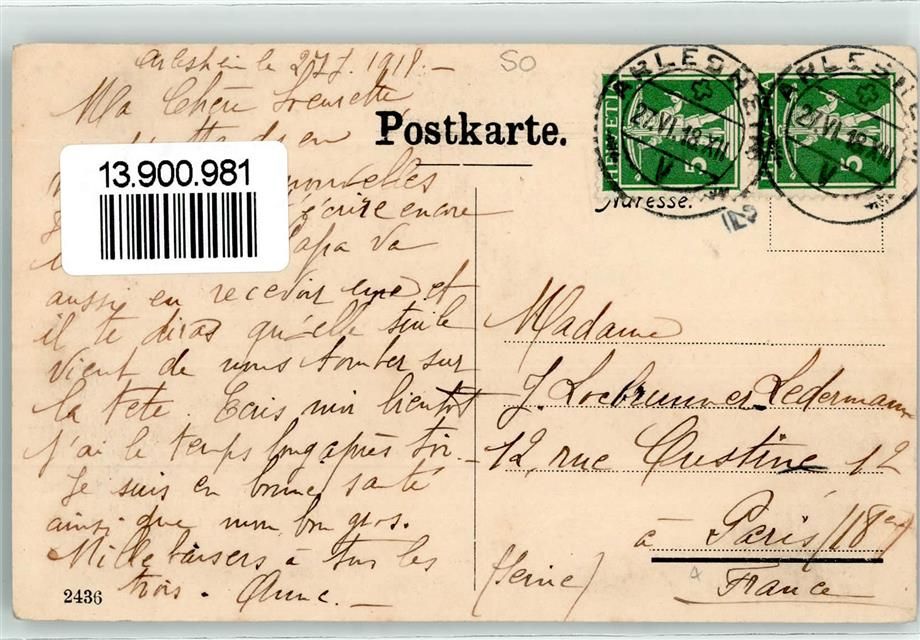 Arlesheim le 27. 1918. —
Ma Chère
SO
Postkarte.
ARLESHEIM
27.VI.18.XII
V
HELVETIA
5
ARLESHEIM
27.VI.18.XII
V
5
Adresse.
13.900.981
nouvelles
écrire encore
Papa va
aussi en recevoir une et
il te diras qu'elle tuile
vient de nous tomber sur
la tête. Ecris moi bientôt
j'ai le temps long après toi. —
Je suis en bonne santé
ainsi que mon bon gros.
Mille baisers à tous les
trois. Anne. —
2436
Madame
J. Loebrunner-Ledermann
12, rue Custine 12
à Paris (18e)
(Seine)
France